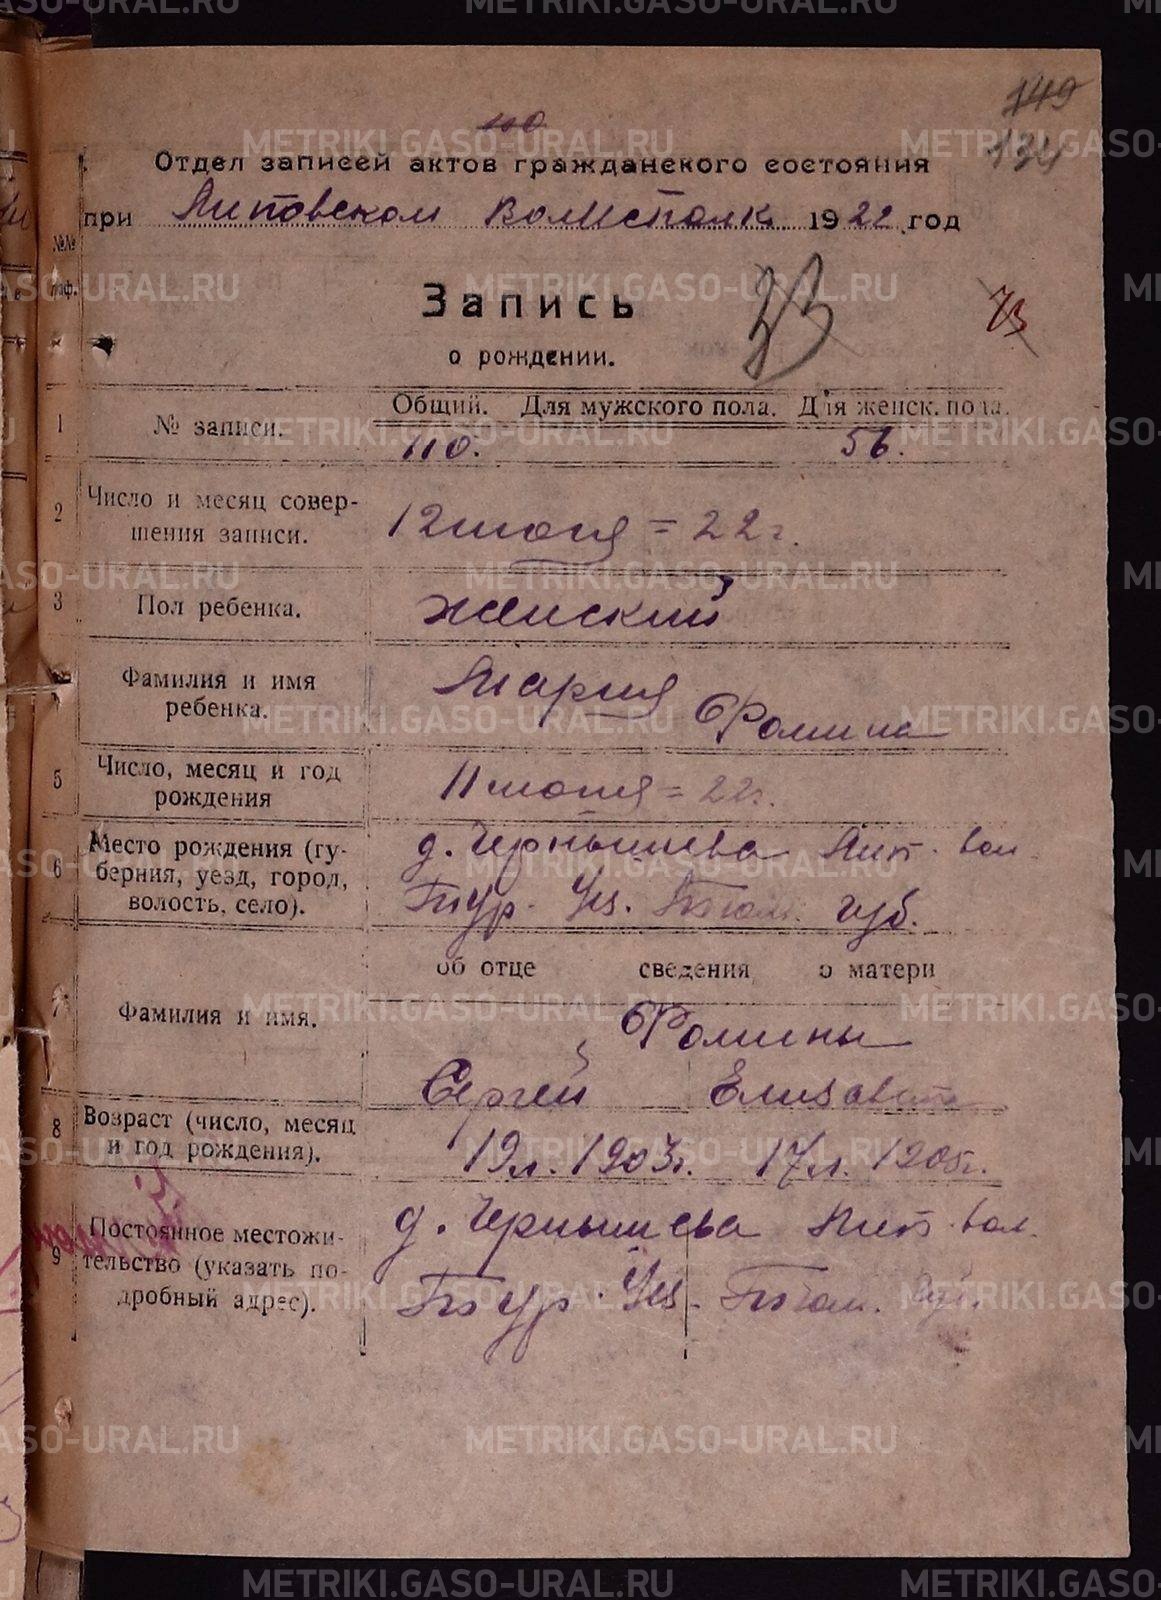 149
134
110
Отдел записей актов гражданского состояния
при Липовском Волисполк 1922 год
№№
Запись
23
73
о рождении.
Общий. Для мужского пола. Для женск. пола.
1 № записи. 110. 56.
2 Число и месяц совер-
шения записи. 12 июня = 22 г.
3 Пол ребенка. женский
Фамилия и имя Мария
ребенка. Фомина
5 Число, месяц и год 11 июня = 22 г.
рождения
6 Место рождения (гу- д. Чернышева Лип. вол.
берния, уезд, город, Тур. Уез. губ.
волость, село).
об отце сведения о матери
7 Фамилия и имя. Фомины
Сергей Елизавета
8 Возраст (число, месяц
и год рождения). 19 л. 1903 г. 17 л. 1905 г.
9 Постоянное местожи- д. Чернышева Лип. вол.
тельство (указать по-
дробный адрес). Тур. Уез. губ.
METRIKI.GASO-URAL.RU